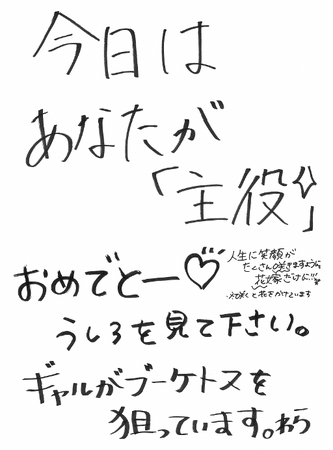 今日は
あなたが
「主役」
おめでとー♡
人生に笑顔が
たくさん咲きますように
花嫁だけに!!!
うしろを見て下さい。
ギャルがブーケトスを
狙っています。わら